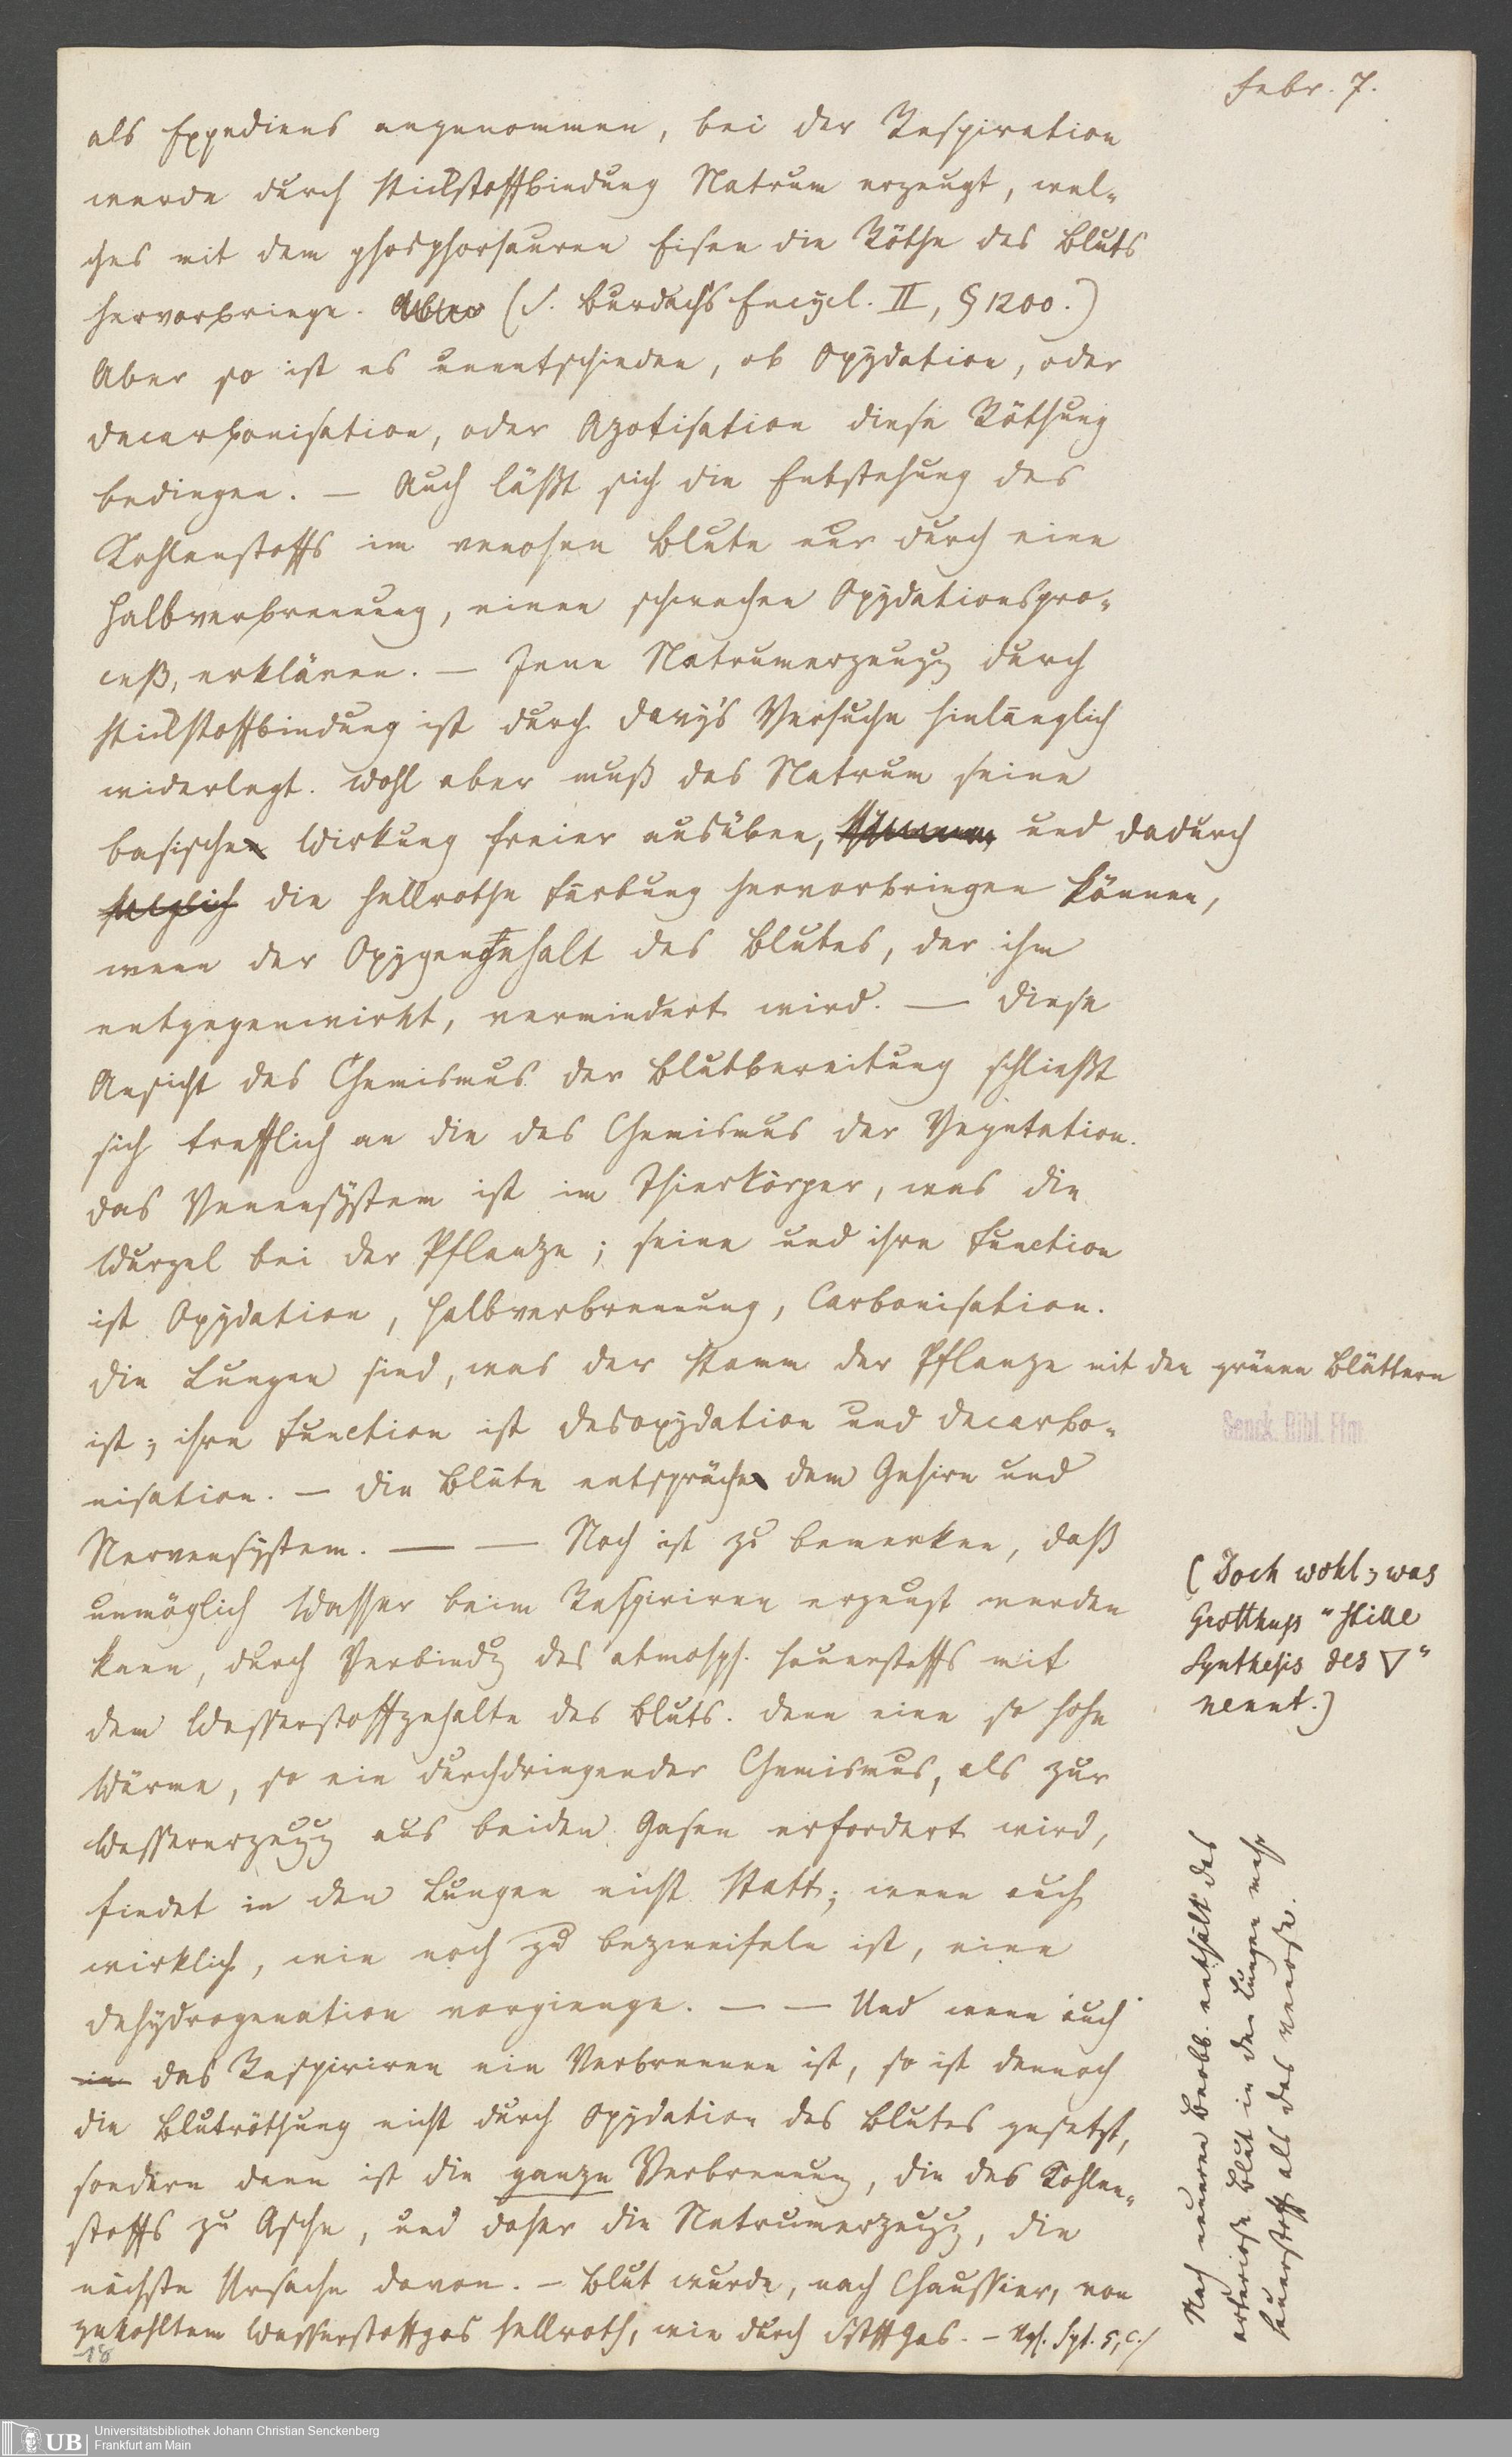 Febr. 7.
als Expediens angenommen, bei der Respiration
werde durch Stickstoffbindung Natrum erzeugt, wel-
ches mit dem phosphorsauren Eisen die Röthe des Bluts
hervorbringe. Aber (S. Burdach's Encycl. II, § 1200.)
Aber so ist es unentschieden, ob Oxydation, oder
Decarbonisation, oder Azotisation diese Röthung
bedingen. — Auch läßt sich die Entstehung des
Kohlenstoffs im venosen Blute nur durch eine
Halbverbrennung, einen schwachen Oxydationspro-
ceß, erklären. — Jene Natrumerzeugg durch
Stickstoffbindung ist durch Davy's Versuche hinlänglich
widerlegt. Wohl aber muß das Natrum seine
basische Wirkung freier ausüben, und dadurch
folglich die hellrothe Färbung hervorbringen können,
wenn der Oxygengehalt des Blutes, der ihm
entgegenwirkt, vermindert wird. — Diese
Ansicht des Chemismus der Blutbereitung schließt
sich trefflich an die des Chemismus der Vegetation.
Das Venensystem ist im Thierkörper, was die
Wurzel bei der Pflanze; seine und ihre Function
ist Oxydation, Halbverbrennung, Carbonisation.
Die Lungen sind, was der Stamm der Pflanze mit den grünen Blättern
ist; ihre Function ist Desoxydation und Decarbo-
nisation. — Die Blüte entspräche dem Gehirn und
Nervensystem. — — Noch ist zu bemerken, daß
unmöglich Wasser beim Respiriren erzeugt werden
kann, durch Verbindg des atmosph. Sauerstoffs mit
dem Wasserstoffgehalte des Bluts. Denn eine so hohe
Wärme, so ein durchdringender Chemismus, als zur
Wassererzeugg aus beiden Gasen erfordert wird,
findet in den Lungen nicht Statt; wenn auch
wirklich, wie noch zu bezweifeln ist, eine
Dehydrogenation vorgienge. — — Und wenn auch
in das Respiriren ein Verbrennen ist, so ist dennoch
die Blutröthung nicht durch Oxydation des Blutes gesetzt,
sondern dann ist die ganze Verbrennung, die des Kohlen-
stoffs zu Asche, und daher die Natrumerzeugg, die
nächste Ursache davon. — Blut wurde, nach Chaussier, von
gekohltem Wasserstoffgas hellroth, wie durch Gas. —
18
Senck. Bibl. Ffm.
(Doch wohl; was
Grotthuss "stille
Synthesis des ▽"
nennt.)
Nach neueren Beobb. enthält das
arteriose Blut in den Lungen mehr
Sauerstoff als das venose.
UB
Universitätsbibliothek Johann Christian Senckenberg
Frankfurt am Main